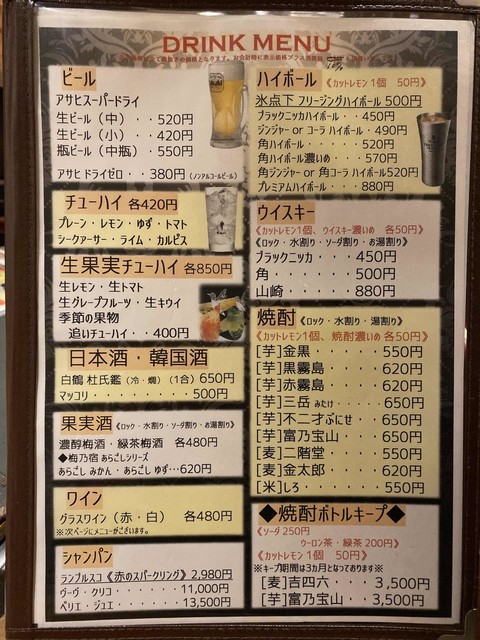 DRINK MENU
ビール
アサヒスーパードライ
生ビール（中）・・520円
生ビール（小）・・420円
瓶ビール（中瓶）・・550円
アサヒドライゼロ・・380円（ノンアルコールビール）
チューハイ 各420円
プレーン・レモン・ゆず・トマト
シークァーサー・ライム・カルピス
生果実チューハイ 各850円
生レモン・生トマト
生グレープフルーツ・生キウイ
季節の果物
追いチューハイ・・400円
日本酒・韓国酒
白鶴 杜氏鑑（冷・燗）（1合）650円
マッコリ・・・・・・・・500円
果実酒《ロック・水割り・ソーダ割り・お湯割り》
濃醇梅酒・緑茶梅酒 各480円
◆梅乃宿 あらごしシリーズ
あらごし みかん・あらごし ゆず…620円
ワイン
グラスワイン（赤・白） 各480円
※次ページにメニューがございます。
シャンパン
ランブルスコ《赤のスパークリング》2,980円
ヴーヴ・クリコ・・・・・11,000円
ペリエ・ジュエ・・・・・13,500円
ハイボール《カットレモン1個 50円》
氷点下 フリージングハイボール 500円
ブラックニッカハイボール・・・450円
ジンジャー or コーラ ハイボール・490円
角ハイボール・・・・・520円
角ハイボール濃いめ・・・570円
角ジンジャー or 角コーラ ハイボール520円
プレミアムハイボール・・・・880円
ウイスキー
《カットレモン1個、ウイスキー濃いめ 各50円》
《ロック・水割り・ソーダ割り・お湯割り》
ブラックニッカ・・・450円
角・・・・・・・500円
山崎・・・・・・880円
焼酎《ロック・水割り・湯割り》
《カットレモン1個、焼酎濃いめ 各50円》
[芋]金黒・・・・・550円
[芋]黒霧島・・・・620円
[芋]赤霧島・・・・620円
[芋]三岳 みたけ・・・・650円
[芋]不二才ぶにせ・・・650円
[芋]富乃宝山・・・650円
[麦]二階堂・・・・550円
[麦]金太郎・・・・620円
[米]しろ・・・・・550円
◆焼酎ボトルキープ◆
《ソーダ 250円
ウーロン茶・緑茶 200円》
《カットレモン1個 50円》
※キープ期間は3カ月となっております※
[麦]吉四六・・・3,500円
[芋]富乃宝山・・3,500円